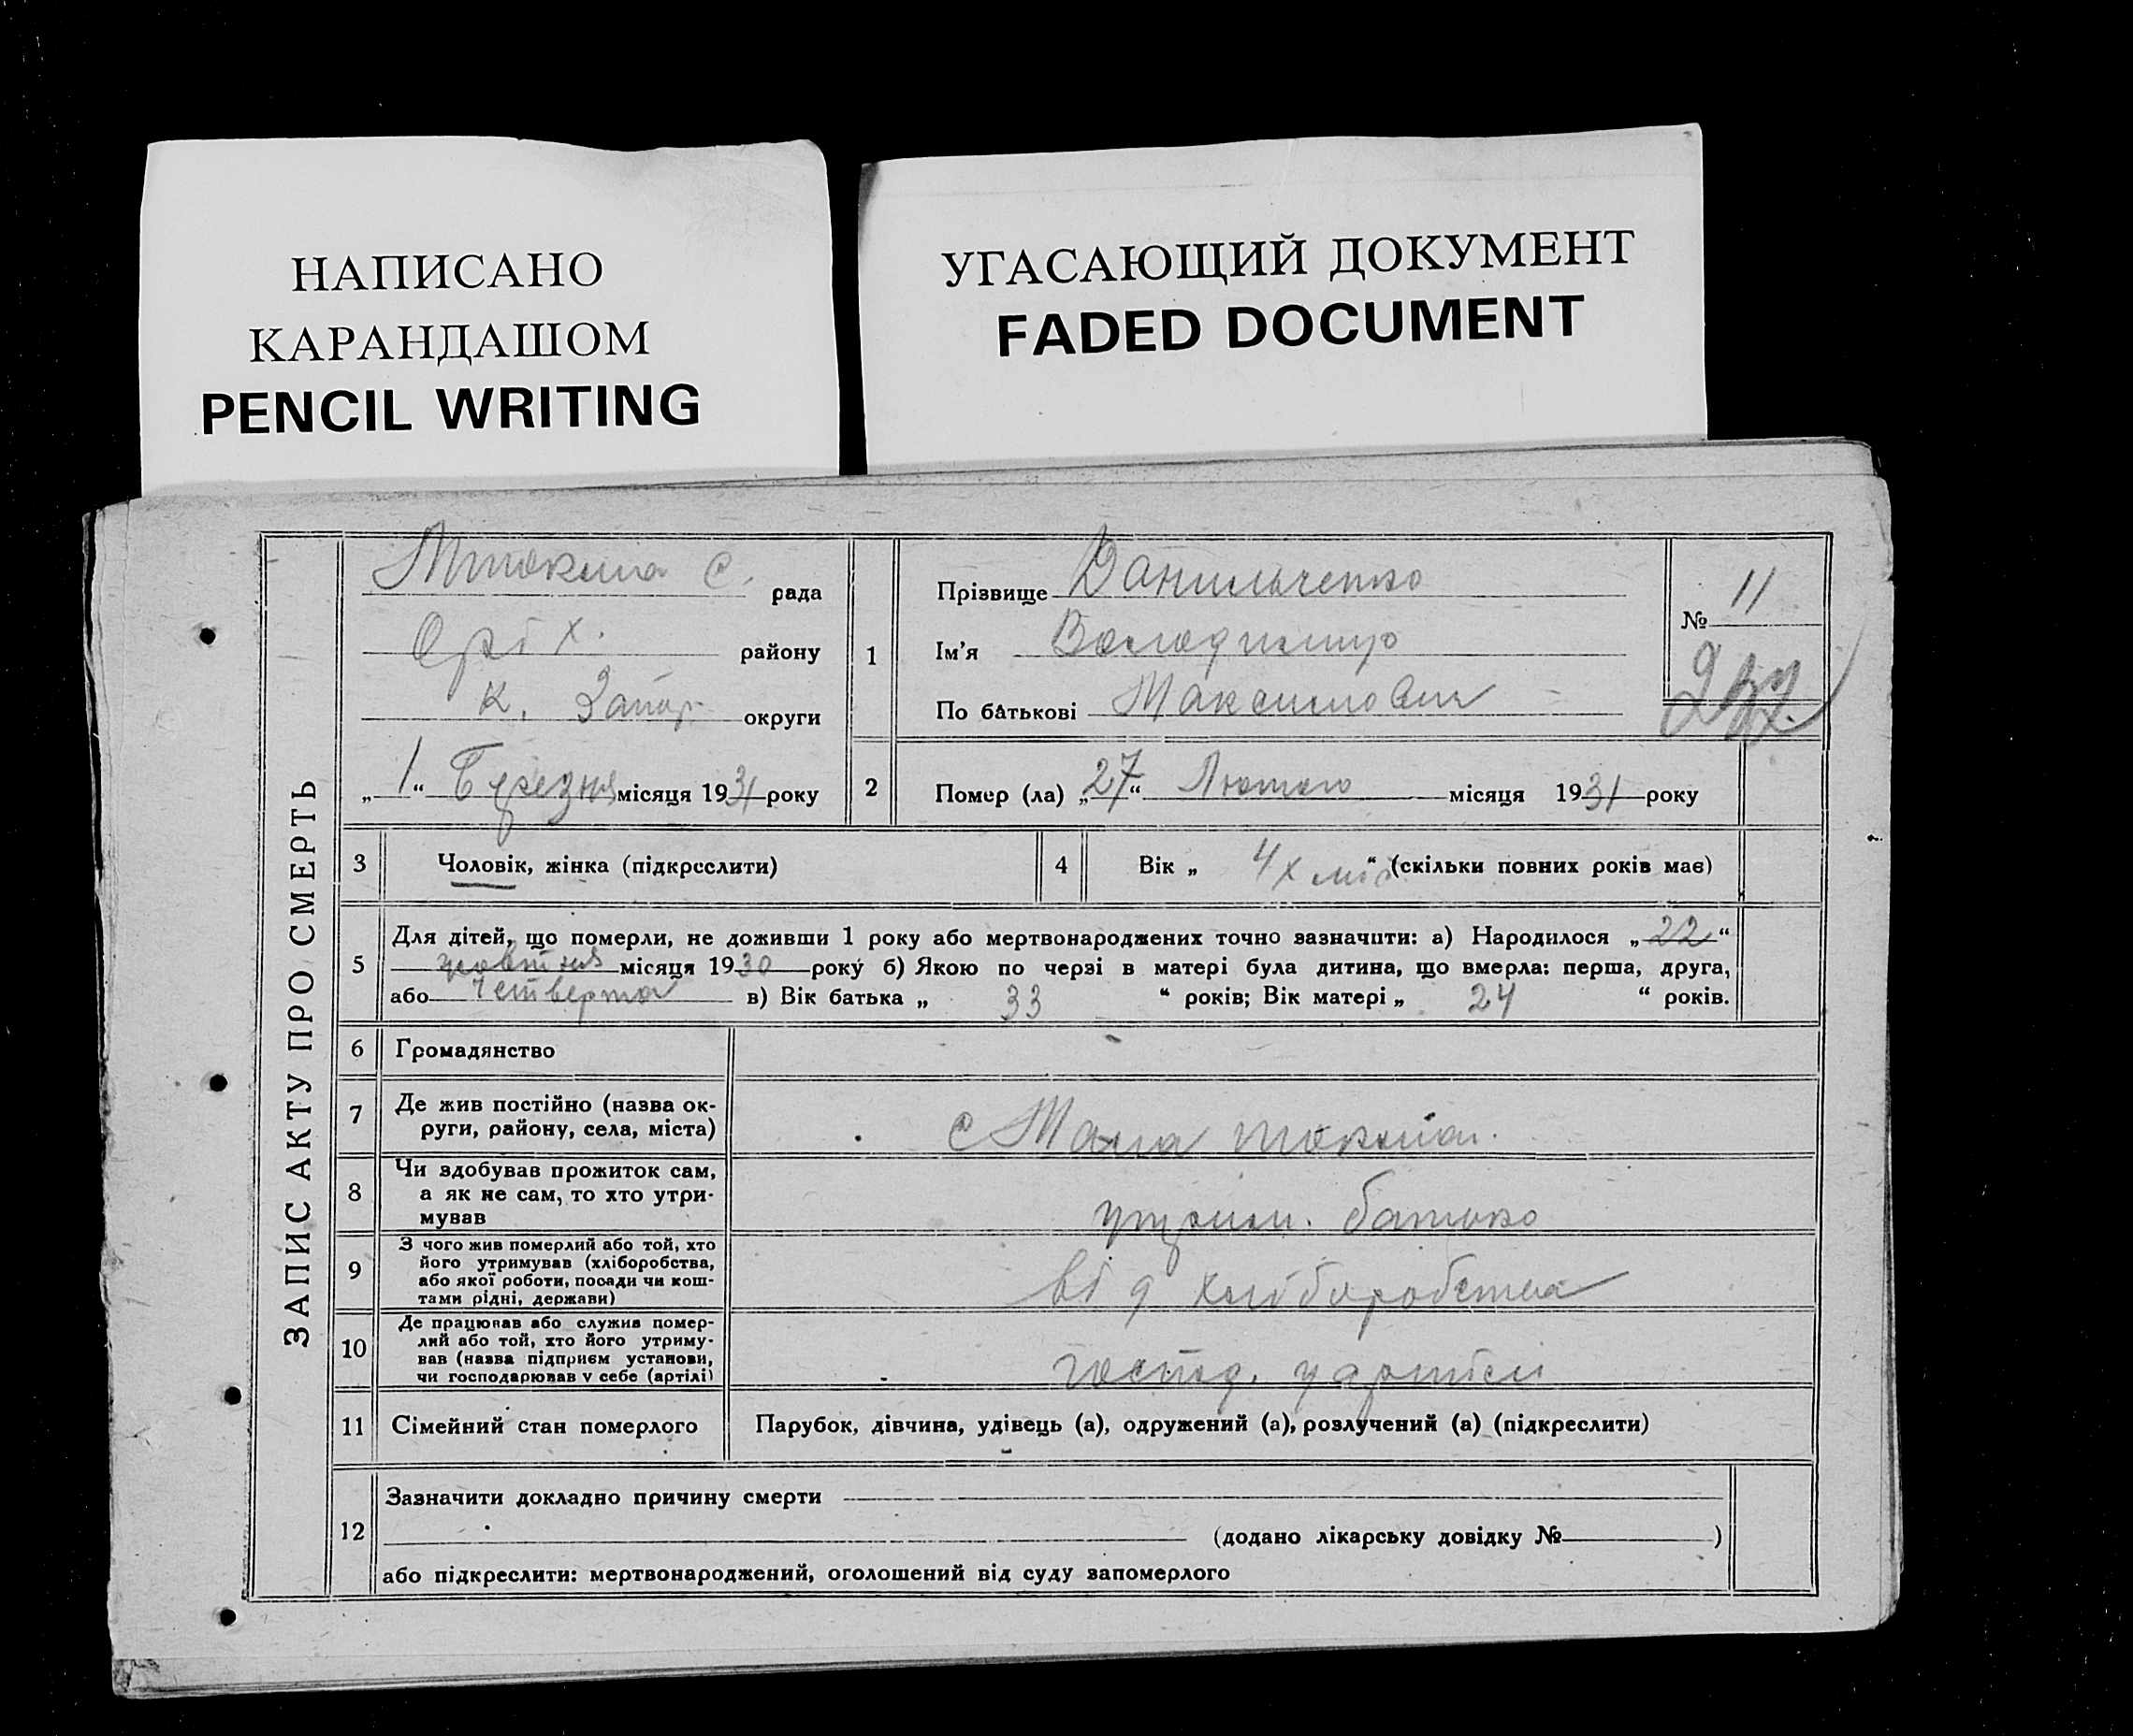 НАПИСАНО
КАРАНДАШОМ
PENCIL WRITING
УГАСАЮЩИЙ ДОКУМЕНТ
FADED DOCUMENT
ЗАПИС АКТУ ПРО СМЕРТЬ
М токмна с. рада
Оріх. району
к. Запор. округи
„1“ Березня місяця 1931 року
1
Прізвище Данильченко
Ім'я Володимир
По батькові Максимович
№ 11
2
Помер (ла) „27“ Лютого місяця 1931 року
3 Чоловік, жінка (підкреслити)
4 Вік „4х міс“ (скільки повних років має)
5 Для дітей, що померли, не доживши 1 року або мертвонароджених точно зазначити: а) Народилося „22“
жовтня місяця 1930 року б) Якою по черзі в матері була дитина, що вмерла: перша, друга,
або четверта в) Вік батька „33“ років; Вік матері „24“ років.
6 Громадянство
7 Де жив постійно (назва ок-
руги, району, села, міста)
с Мала токмач.
8 Чи здобував прожиток сам,
а як не сам, то хто утри-
мував
утрим. батько
9 З чого жив померлий або той, хто
його утримував (хліборобства,
або якої роботи, посади чи кош-
тами рідні, держави)
від хліборобства
10 Де працював або служив помер-
лий або той, хто його утриму-
вав (назва підприєм установи,
чи господарював у себе (артілі)
госпд. у артілі
11 Сімейний стан померлого
Парубок, дівчина, удівець (а), одружений (а), розлучений (а) (підкреслити)
12 Зазначити докладно причину смерти
(додано лікарську довідку № )
або підкреслити: мертвонароджений, оголошений від суду запомерлого